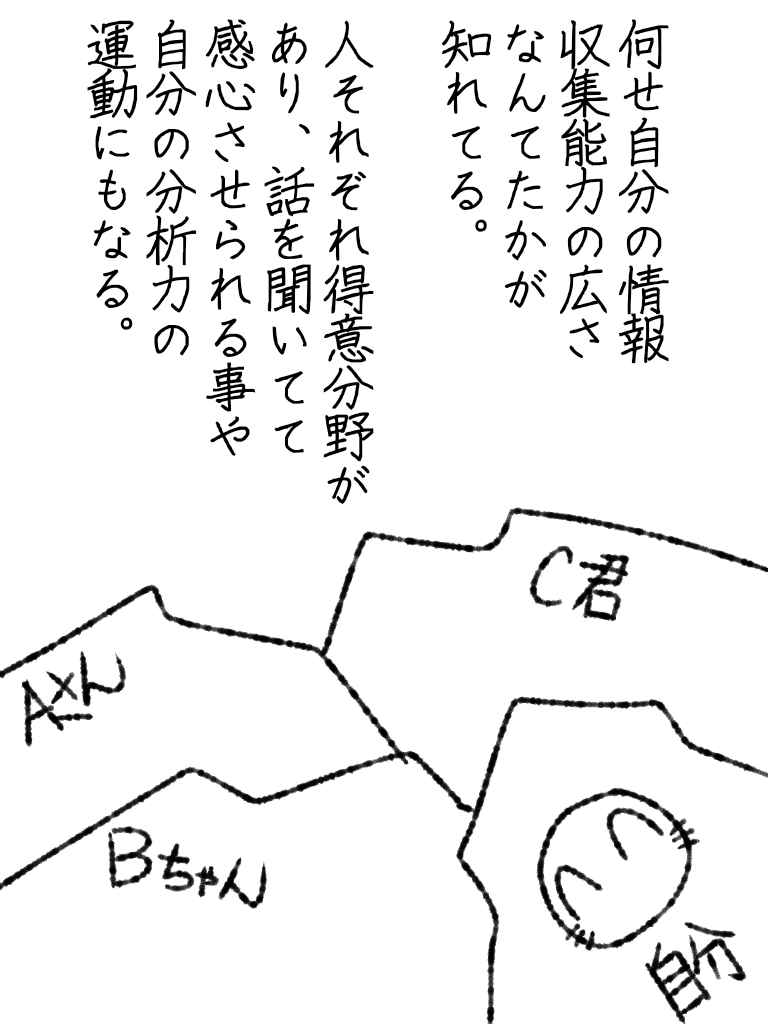 何せ自分の情報
収集能力の広さ
なんてたかが
知れてる。
人それぞれ得意分野が
あり、話を聞いてて
感心させられる事や
自分の分析力の
運動にもなる。
C君
Aさん
Bちゃん
自分